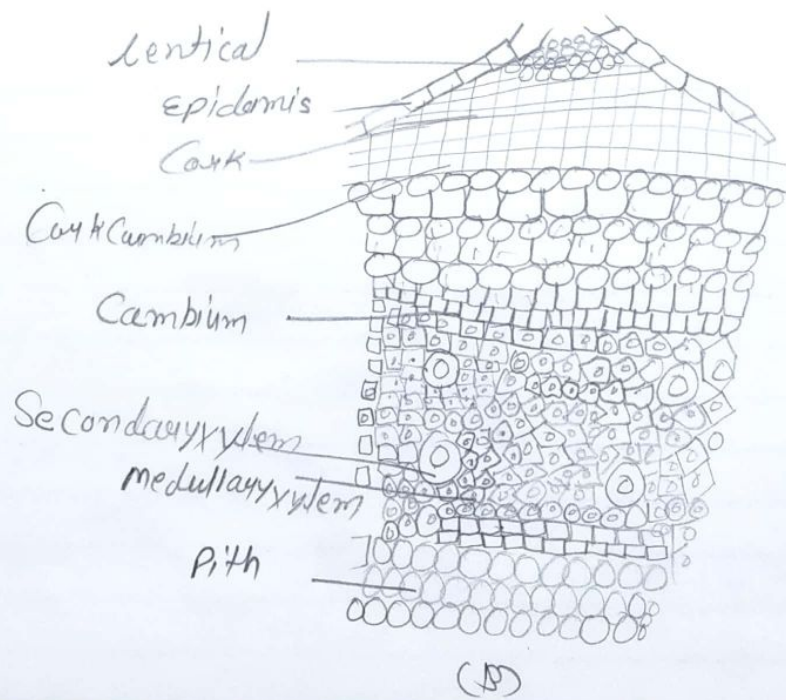 Lentical
Epidamis
Cork
Cork Cambium
Cambium
Secondaryxylem
medullaryxylem
Pith
(B)